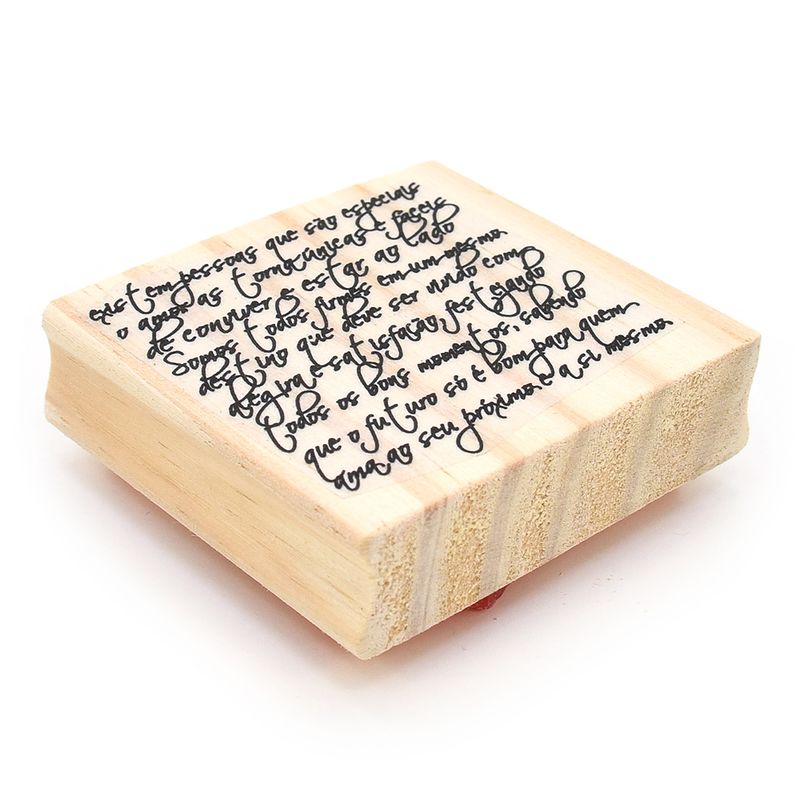 existem pessoas que são especiais
o amor as torna únicas e fáceis
de conviver e estar ao lado
Somos todos firmes em um mesmo
destino que deve ser vivido com
alegria e satisfação, festejando
todos os bons momentos, sabendo
que o futuro só é bom para quem
ama ao seu próximo e a si mesmo.